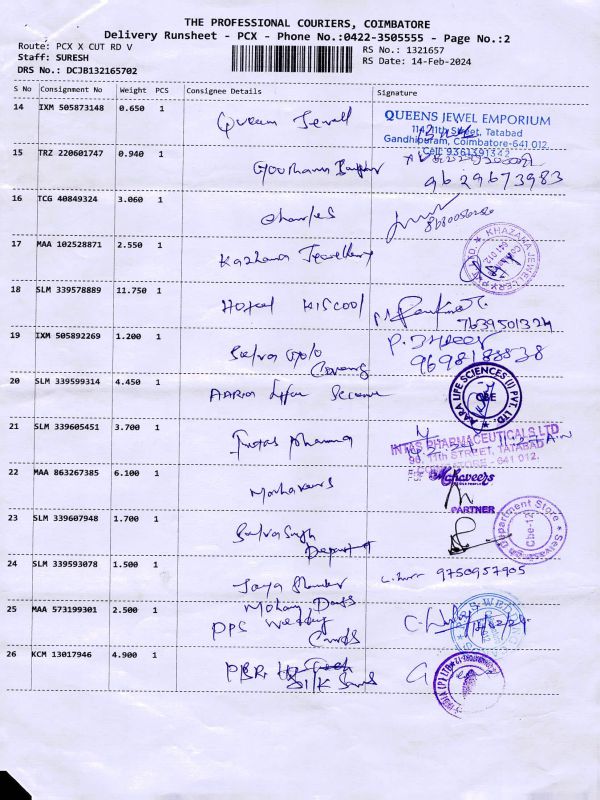 THE PROFESSIONAL COURIERS, COIMBATORE
Delivery Runsheet - PCX - Phone No.:0422-3505555 - Page No.:2
Route: PCX X CUT RD V
RS No.: 1321657
Staff: SURESH
RS Date: 14-Feb-2024
DRS No.: DCJB132165702
S No Consignment No Weight PCS Consignee Details Signature
14 IXM 505873148 0.650 1 Queen Jewell
QUEENS JEWEL EMPORIUM
11th Street, Tatabad
Gandhipuram, Coimbatore-641 012.
Cell: 9361391342
15 TRZ 220601747 0.940 1
9629673983
16 TCG 40849324 3.060 1 Charles
17 MAA 102528871 2.550 1 Kazhana Jewellery
KHAZANA JEWELLERY PVT LTD
18 SLM 339578889 11.750 1 Hotel KISCOOL
7639501324
19 IXM 505892269 1.200 1
9698188838
20 SLM 339599314 4.450 1 AARA Life Science
AARA LIFE SCIENCES (I) PVT. LTD.
CBE
21 SLM 339605451 3.700 1 Intas pharma
INTAS PHARMACEUTICALS LTD
11th STREET, TATABAD
641 012.
22 MAA 863267385 6.100 1 Mahaveers
For Mahaveers
PARTNER
23 SLM 339607948 1.700 1
Department
Department Store
Cbe-12
24 SLM 339593078 1.500 1 Jaya
9750957905
25 MAA 573199301 2.500 1 Mohan Dass
PPS Wedding
Cards
26 KCM 13017946 4.900 1 PBR
Silk